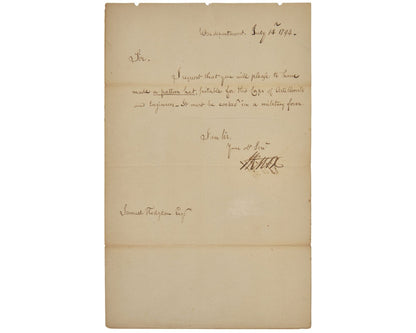 War department July 18th 1794.
Sir.
I request that you will please to have
made a pattern hat, suitable for the Corps of Artillerists
and engineers – It must be cocked in a military form
I am Sir
Your
H Knox
Samuel Hodgdon Esqr